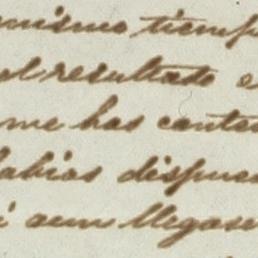 mismo tiemp
el resultado e
me has conte
labios despue
i aun llegase